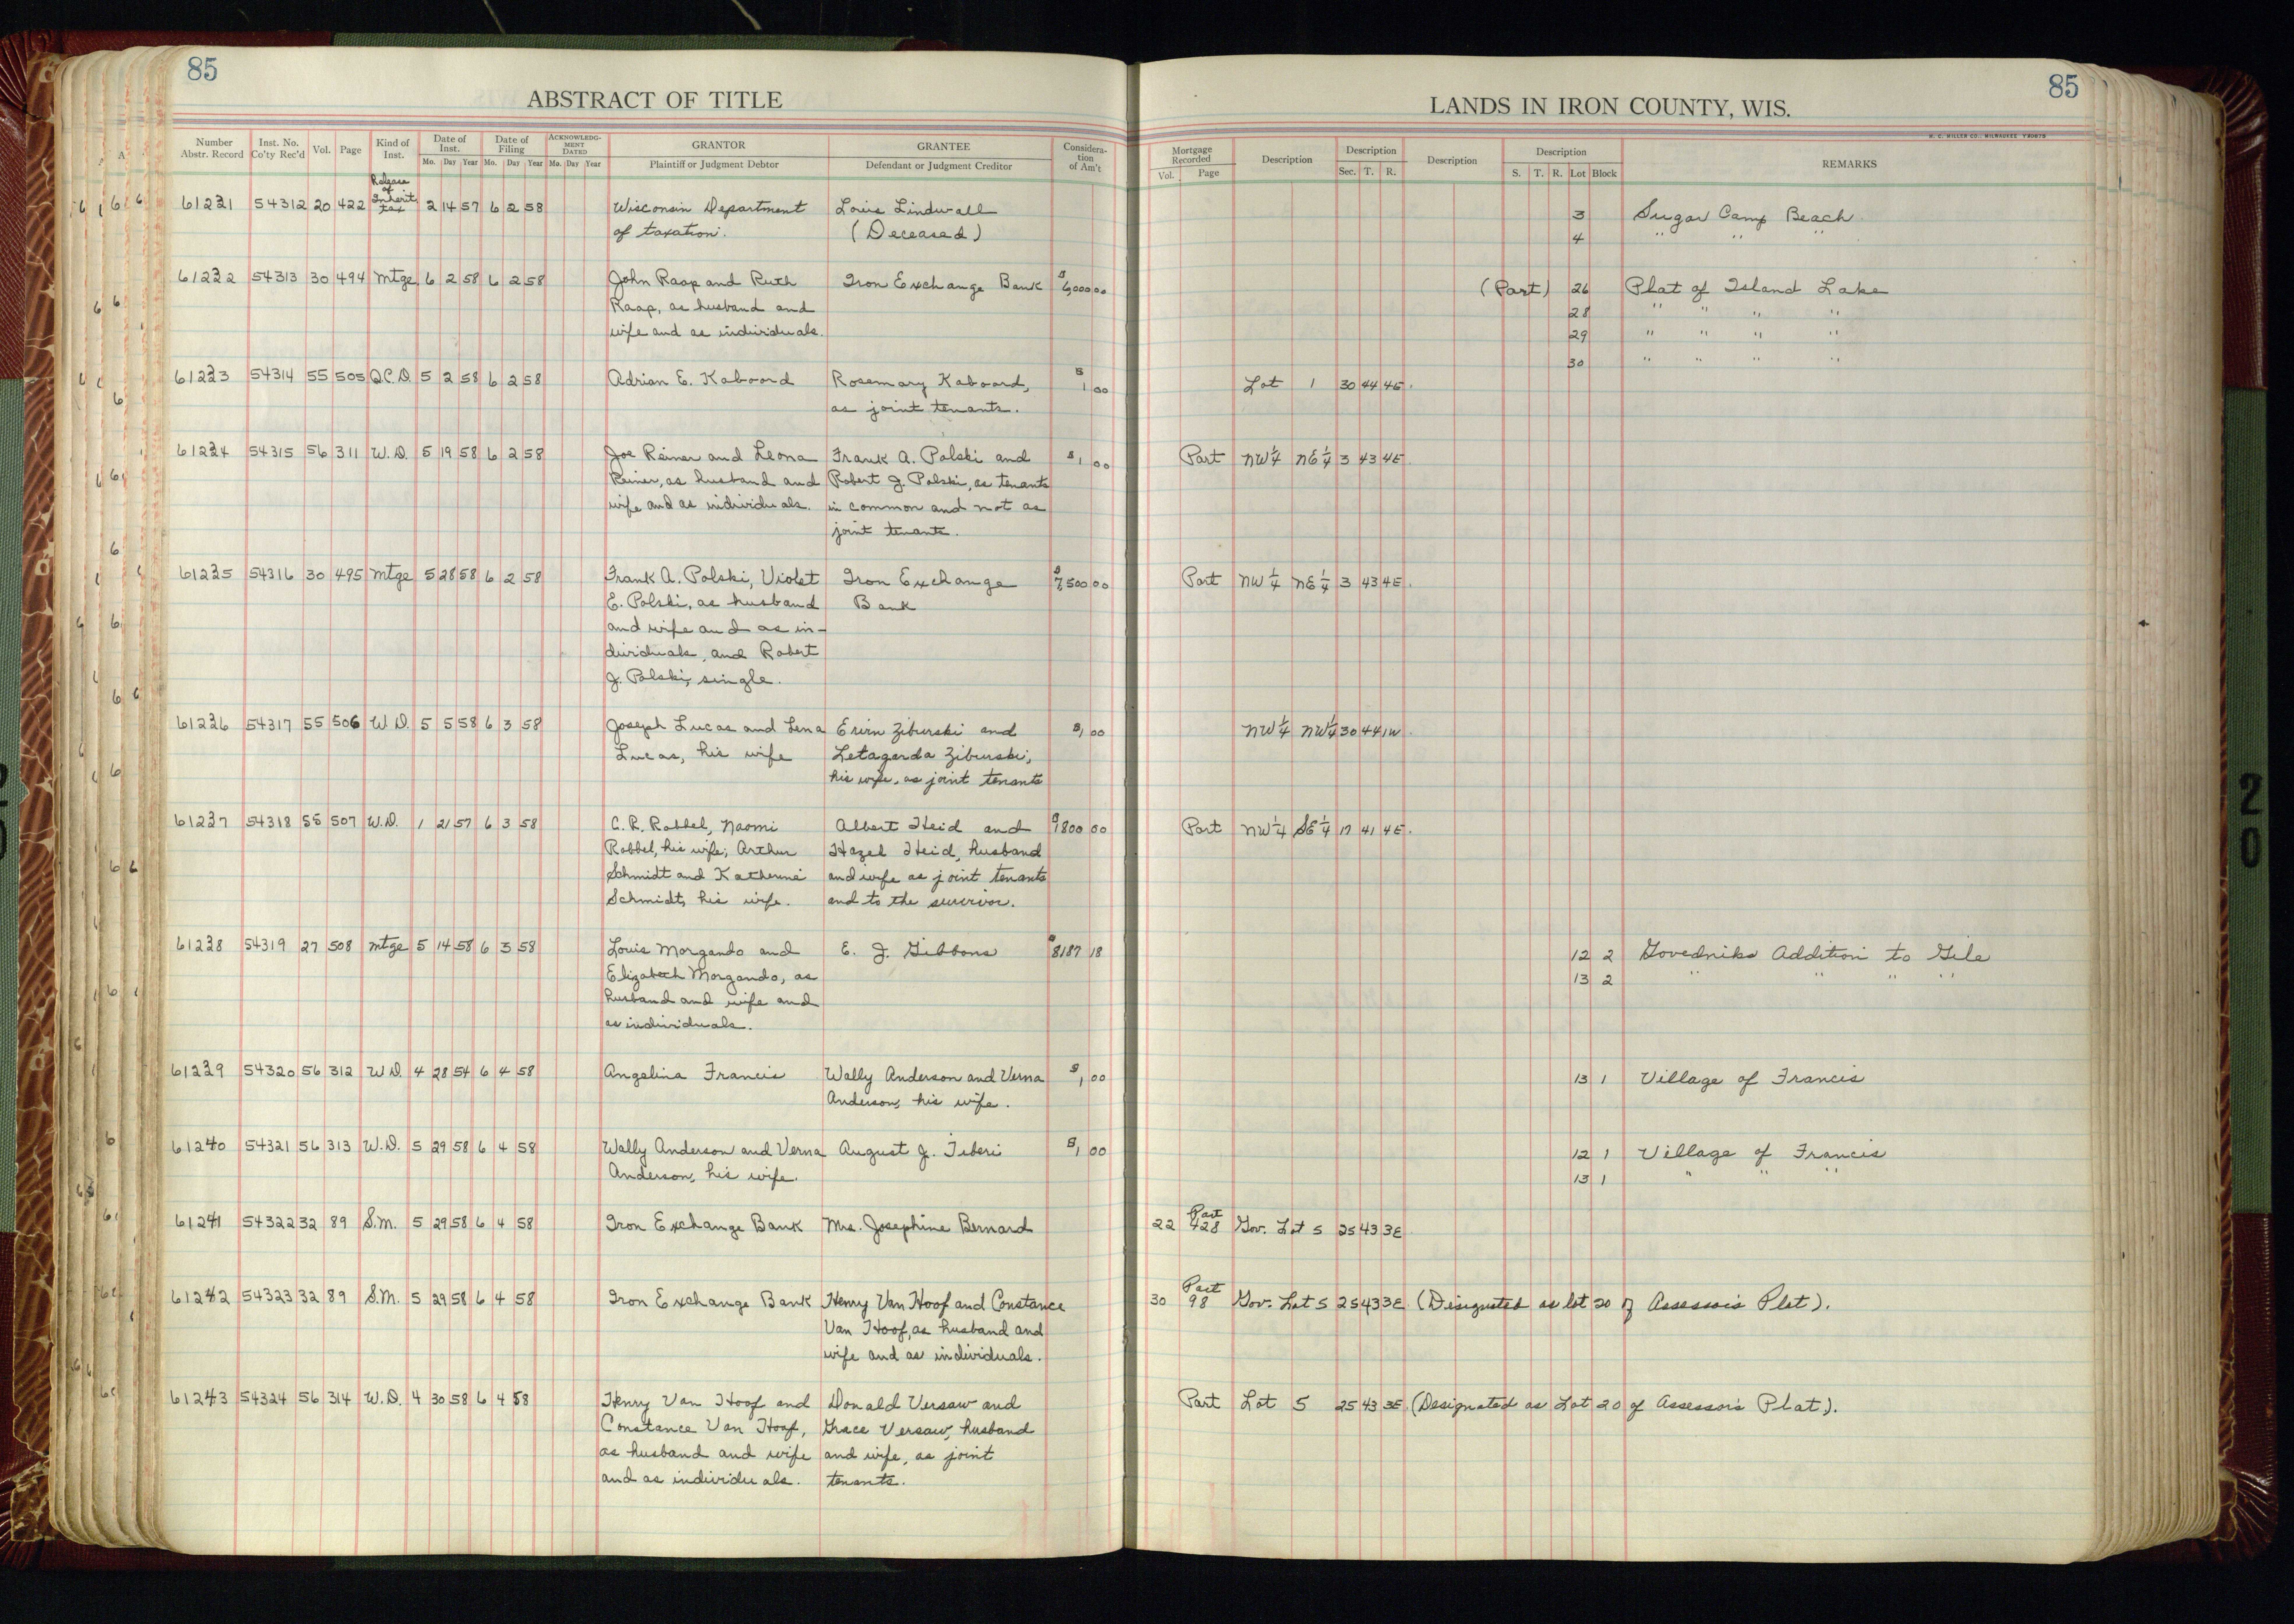 85
ABSTRACT OF TITLE
Number Abstr. Record | Inst. No. Co'ty Rec'd | Vol. | Page | Kind of Inst. | Date of Inst. Mo. Day Year | Date of Filing Mo. Day Year | ACKNOWLEDGMENT DATED Mo. Day Year | GRANTOR Plaintiff or Judgment Debtor | GRANTEE Defendant or Judgment Creditor | Consideration of Am't
61231 54312 20 422 Release of Inherit. tax 2 14 57 6 2 58 Wisconsin Department Louis Lindwall
of taxation. (Deceased)
61232 54313 30 494 Mtge. 6 2 58 6 2 58 John Raap and Ruth Iron Exchange Bank $6,000 00
Raap, as husband and
wife and as individuals.
61233 54314 55 505 Q.C.D. 5 2 58 6 2 58 Adrian E. Kaboord Rosemary Kaboord, $1 00
as joint tenants.
61234 54315 56 311 W.D. 5 19 58 6 2 58 Joe Reiner and Leona Frank A. Polski and $1 00
Reiner, as husband and Robert J. Polski, as tenants
wife and as individuals. in common and not as
joint tenants.
61235 54316 30 495 Mtge 5 28 58 6 2 58 Frank A. Polski, Violet Iron Exchange $7,500 00
E. Polski, as husband Bank
and wife and as in-
dividuals, and Robert
J. Polski, single.
61236 54317 55 506 W.D. 5 5 58 6 3 58 Joseph Lucas and Lena Erwin Ziburski and $1 00
Lucas, his wife Letagarda Ziburski,
his wife, as joint tenants
61237 54318 55 507 W.D. 1 21 57 6 3 58 C. R. Robbel, Naomi Albert Heid and $800 00
Robbel, his wife; Arthur Hazel Heid, husband
Schmidt and Katherine and wife as joint tenants
Schmidt, his wife. and to the survivor.
61238 54319 27 508 Mtge 5 14 58 6 3 58 Louis Morgando and E. J. Gibbons $8187 18
Elizabeth Morgando, as
husband and wife and
as individuals.
61239 54320 56 312 W.D. 4 28 54 6 4 58 Angelina Francis Wally Anderson and Verna $1 00
Anderson, his wife.
61240 54321 56 313 W.D. 5 29 58 6 4 58 Wally Anderson and Verna August J. Tiberi $1 00
Anderson, his wife.
61241 54322 32 89 S.M. 5 29 58 6 4 58 Iron Exchange Bank Mrs. Josephine Bernard
61242 54323 32 89 S.M. 5 29 58 6 4 58 Iron Exchange Bank Henry Van Hoof and Constance
Van Hoof, as husband and
wife and as individuals.
61243 54324 56 314 W.D. 4 30 58 6 4 58 Henry Van Hoof and Donald Versaw and
Constance Van Hoof, Grace Versaw, husband
as husband and wife and wife, as joint
and as individuals. tenants.
85
LANDS IN IRON COUNTY, WIS.
H. C. MILLER CO., MILWAUKEE
Mortgage Recorded Vol. Page | Description | Description Sec. T. R. | Description | Description S. T. R. Lot Block | REMARKS
3 Sugar Camp Beach
4 " " "
(Part) 26 Plat of Island Lake
28 " " " "
29 " " " "
30 " " " "
Lot 1 30 44 4E.
Part NW 1/4 NE 1/4 3 43 4E.
Part NW 1/4 NE 1/4 3 43 4E.
NW 1/4 NW 1/4 30 44 1W
Part NW 1/4 SE 1/4 17 41 4E.
12 2 Govedniks Addition to Gile
13 2 " " " "
13 1 Village of Francis
12 1 Village of Francis
13 1 " " "
22 Part 428 Gov. Lot 5 25 43 3E
30 Part 98 Gov. Lot 5 25 43 3E (Designated as lot 20 of Assessor's Plat).
Part Lot 5 25 43 3E. (Designated as Lot 20 of Assessor's Plat).
20